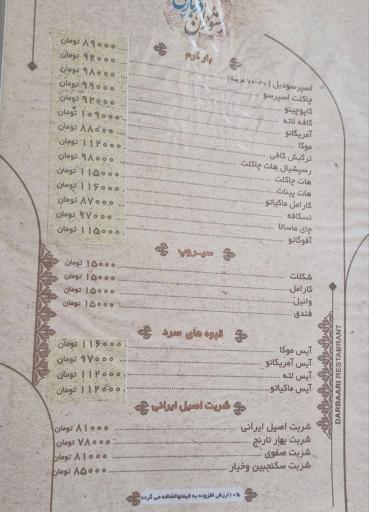 بار گرم
اسپرسو دبل (۳۰-۷۰ عربیکا) ۸۹۰۰۰ تومان
چاکلت اسپرسو ۹۲۰۰۰ تومان
کاپوچینو ۹۸۰۰۰ تومان
کافه لاته ۹۹۰۰۰ تومان
آمریکانو ۹۲۰۰۰ تومان
موکا ۱۰۹۰۰۰ تومان
ترکیش کافی ۸۸۰۰۰ تومان
رسپشیال هات چاکلت ۱۱۲۰۰۰ تومان
هات چاکلت ۹۸۰۰۰ تومان
هات پینات ۱۱۵۰۰۰ تومان
کارامل ماکیاتو ۱۱۶۰۰۰ تومان
نسکافه ۸۷۰۰۰ تومان
چای ماسالا ۹۷۰۰۰ تومان
آفوگاتو ۱۱۵۰۰۰ تومان
سیروپ
شکلات ۱۵۰۰۰ تومان
کارامل ۱۵۰۰۰ تومان
وانیل ۱۵۰۰۰ تومان
فندق ۱۵۰۰۰ تومان
قهوه های سرد
آیس موکا ۱۱۶۰۰۰ تومان
آیس آمریکانو ۹۷۰۰۰ تومان
آیس لته ۱۱۲۰۰۰ تومان
آیس ماکیاتو ۱۱۲۰۰۰ تومان
شربت اصیل ایرانی
شربت اصیل ایرانی ۸۱۰۰۰ تومان
شربت بهار نارنج ۷۸۰۰۰ تومان
شربت صفوی ۸۱۰۰۰ تومان
شربت سکنجبین وخیار ۸۵۰۰۰ تومان
۱۰% ارزش افزوده به قیمتها اضافه می گردد
DARBAARI RESTABRANT